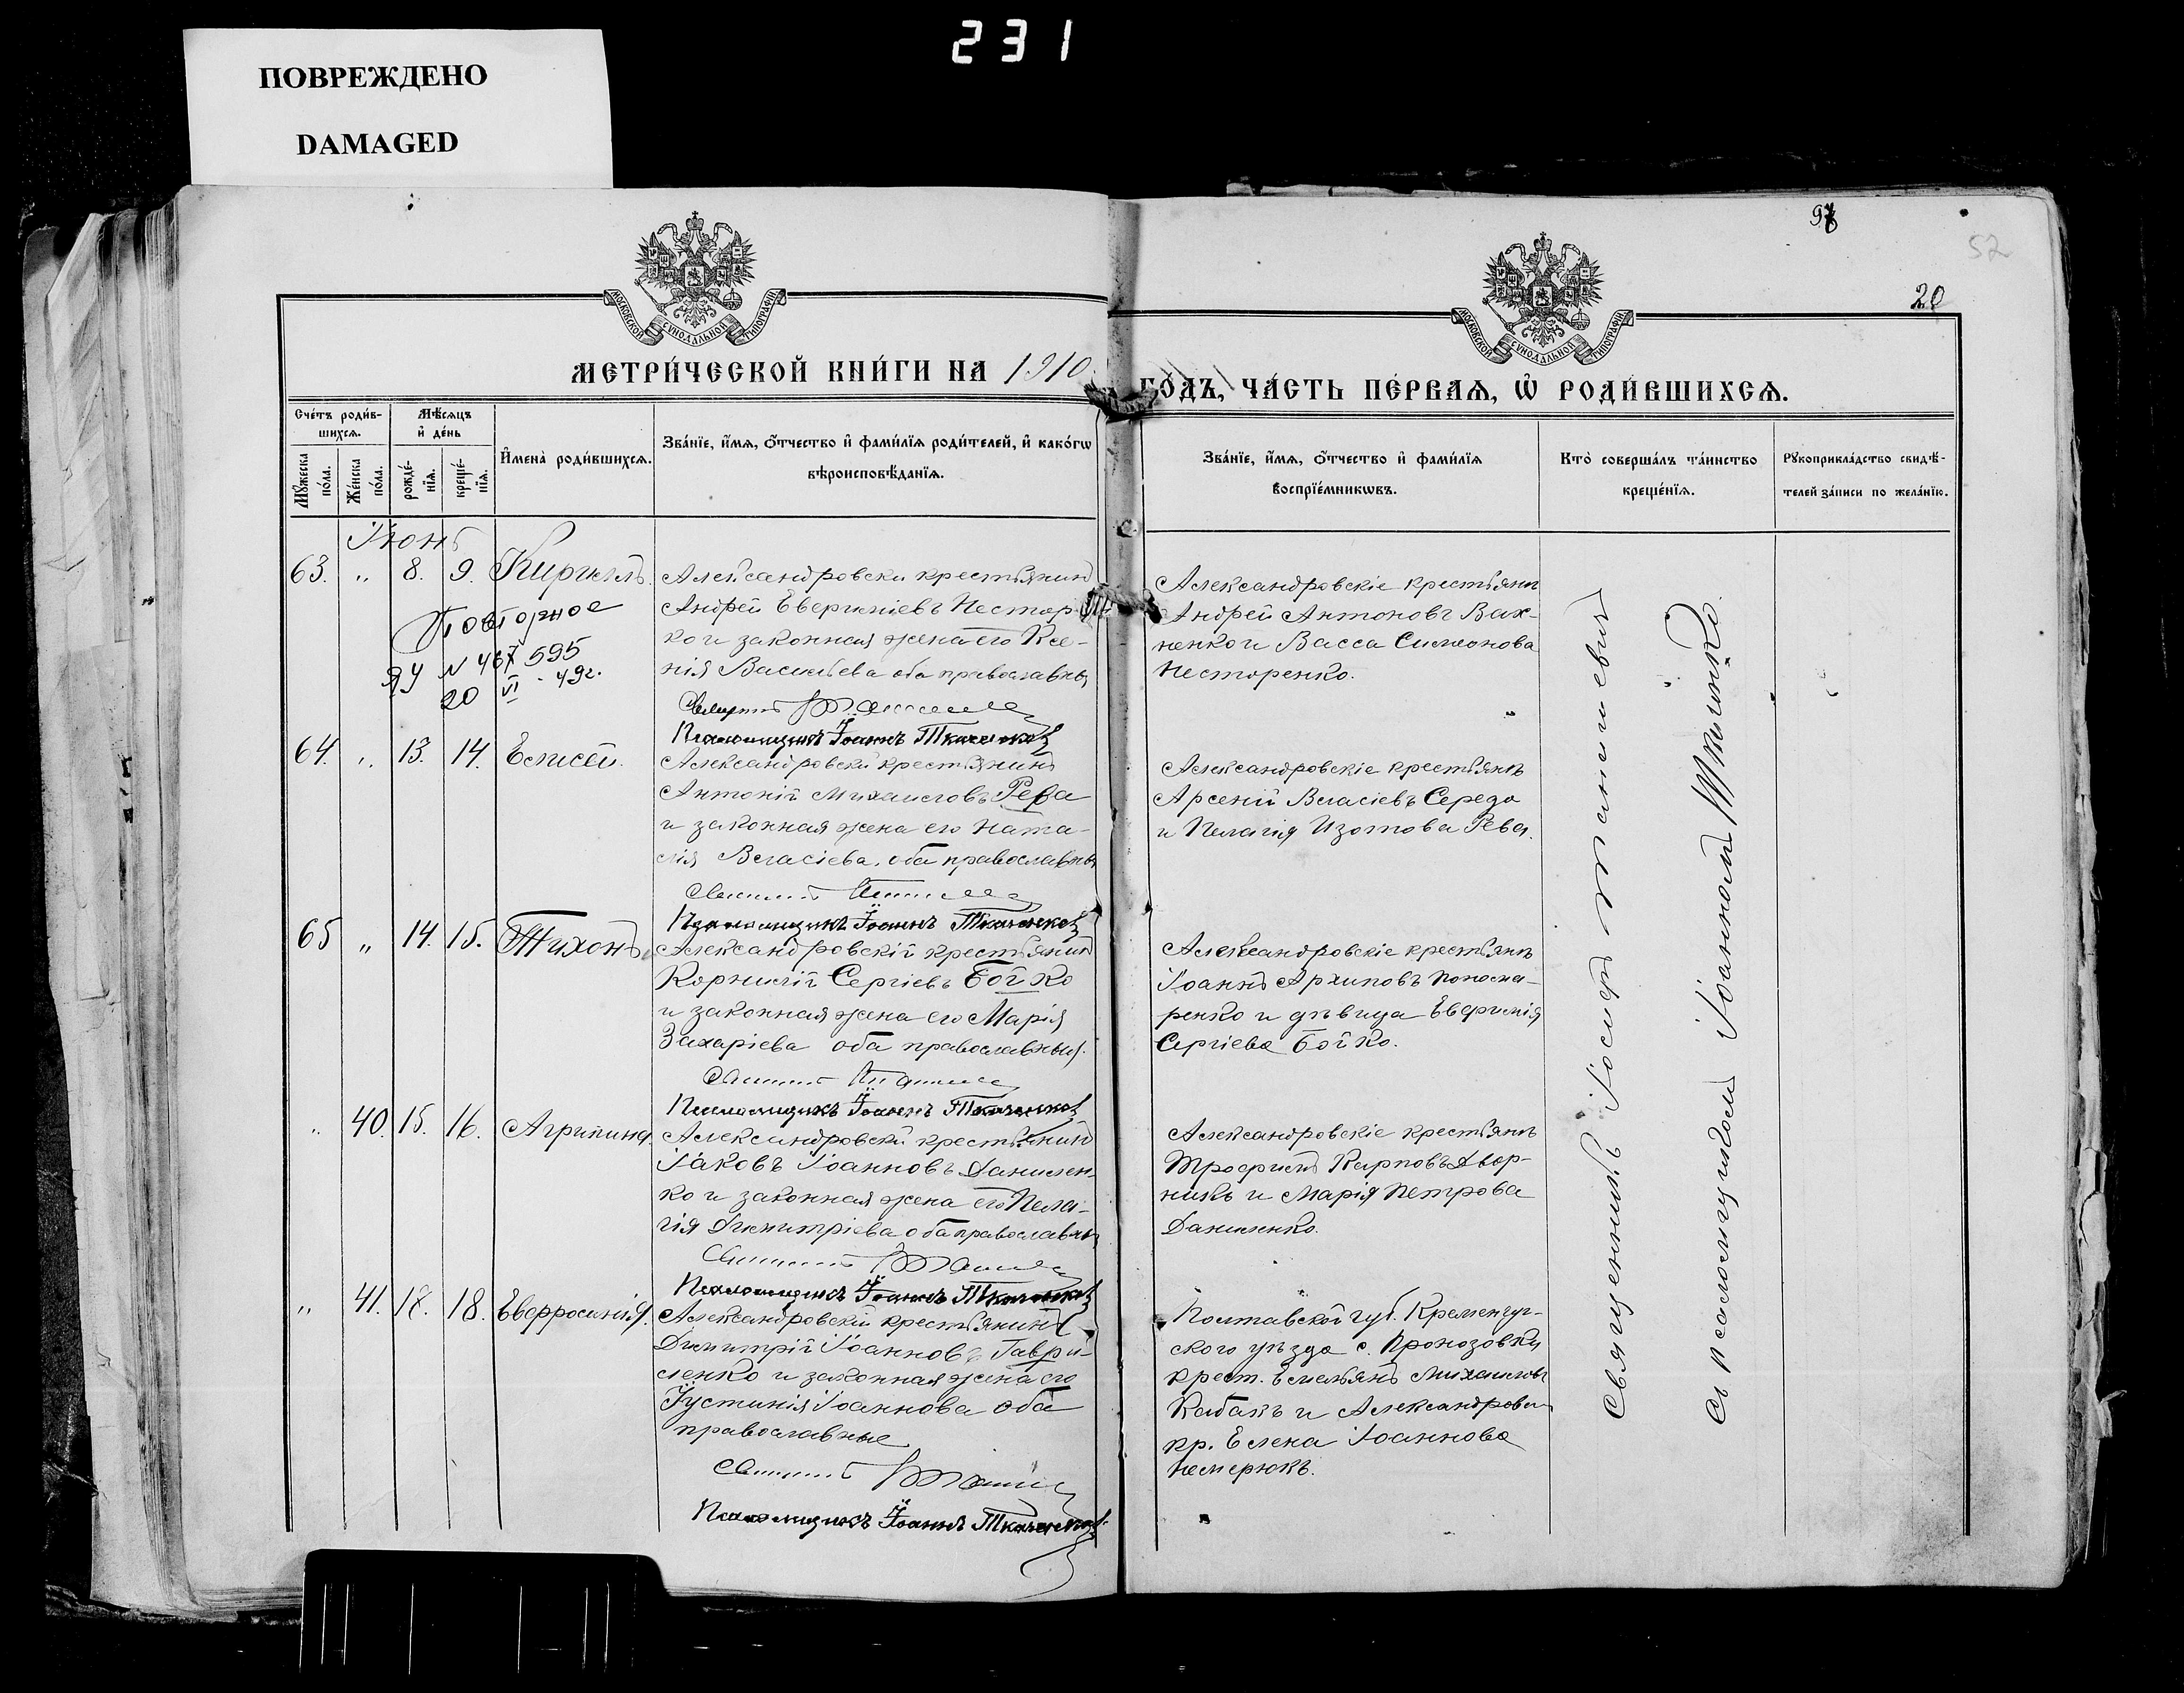 231
ПОВРЕЖДЕНО
DAMAGED
52
20
МОСКОВСКОЙ СѴНОДАЛЬНОЙ ТИПОГРАФІИ
МОСКОВСКОЙ СѴНОДАЛЬНОЙ ТИПОГРАФІИ
МЕТРИ́ЧЕСКОЙ КНИ́ГИ НА 1910
ГО́ДЪ, ЧА́СТЬ ПЕ́РВАЯ, Ѡ҆ РОДИ́ВШИХСЯ.
Сче́тъ роди́в-
шихся.
Мꙋ́жеска
по́ла.
Же́нска
по́ла.
Мѣ́сяцъ
и҆ де́нь
рожде́-
нїя.
креще́-
нїя.
И҆мена̀ роди́вшихся.
Зва́нїе, и҆́мя, ѻ҆́тчество и҆ фами́лїя роди́телей, и҆ како́гѡ
вѣроисповѣ́данїя.
Зва́нїе, и҆́мя, ѻ҆́тчество и҆ фами́лїя
воспрїе́мникѡвъ.
Кто̀ соверша́лъ та́инство
креще́нїя.
Рꙋкоприкла́дство свидѣ́-
телей за́писи по жела́нїю.
Іюнь
63. „ 8. 9. Кириллъ.
Александровскій крестьянинъ
Андрей Евфиміевъ Нестор
ко и законная жена его Ксе-
нія Васильева оба православны
Псаломщикъ Іоаннъ Ткаченко
Повторное
ЯУ N 595
20 VI - 49г.
Александровскіе крестьяне
Андрей Антоновъ Вах-
ненко и Васса Симеонова
Несторенко.
64. „ 13. 14. Елисей.
Александровскій крестьянинъ
Антоній Михаиловъ Рева
и законная жена его Ната-
лія Власіева, оба православны
Псаломщикъ Іоаннъ Ткаченко
Александровскіе крестьяне
Арсеній Власіевъ Середа
и Пелагія Изотова Рева.
65 „ 14. 15. Тихонъ
Александровскій крестьянинъ
Корнилій Сергіевъ Бойко
и законная жена его Марія
Захаріева оба православныя.
Псаломщикъ Іоаннъ Ткаченко
Александровскіе крестьяне
Іоаннъ Архиповъ Понома-
ренко и дѣвица Евфимія
Сергіева Бойко.
„ 40. 15. 16. Агрипина.
Александровскій крестьянинъ
Іаковъ Іоанновъ Данилен-
ко и законная жена его Пела-
гія Димитріева оба православны
Псаломщикъ Іоаннъ Ткаченко
Александровскіе крестьяне
Трофимъ Карповъ Двор-
никъ и Марія Петрова
Даниленко.
„ 41. 18. 18. Евфросинія.
Александровскій крестьянинъ
Димитрій Іоанновъ Гаври-
ленко и законная жена его
Іустинія Іоаннова оба
православные
Псаломщикъ Іоаннъ Ткаченко
Полтавской губ. Кременчуг-
ского уѣзда с. Пронозовки
крест. Емельянъ Михаиловъ
Кабакъ и Александровск
кр. Елена Іоаннова
Немерюкъ.
Священникъ Іосифъ
съ псаломщикомъ Іоанномъ